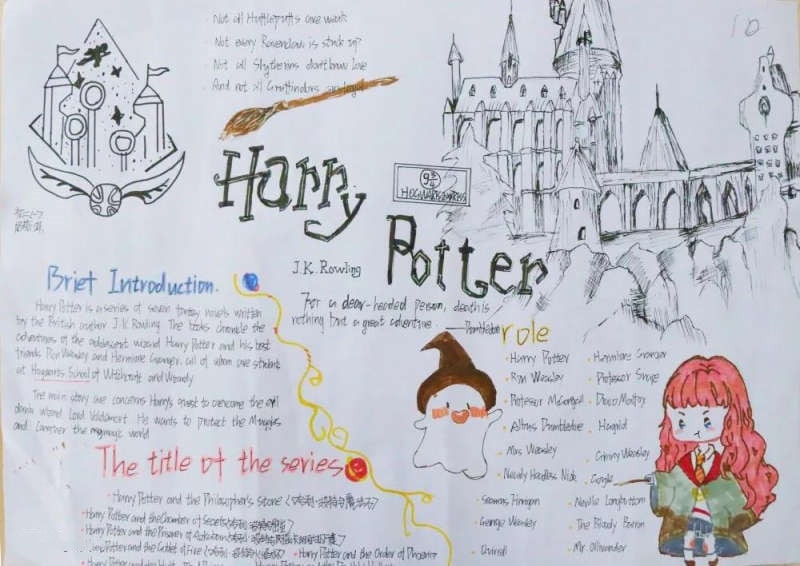 Not all Hufflepuffs are weak
Not every Ravenclaw is stuck up?
Not all Slytherins don't know love
And not all Gryffindors
10
Harry
9¾
HOGWARTS EXPRESS
Potter
J.K. Rowling
Brief Introduction.
Harry Potter is a series of seven fantasy novels written
by the British author J.K. Rowling. The books chronicle the
adventures of the adolescent wizard Harry Potter and his best
friends Ron Weasley and Hermione Granger, all of whom are student
at Hogwarts School of Witchcraft and Wizardy
The main story arc concerns Harry's quest to overcome the evil
dark wizard Lord Voldemort. He wants to protect the Muggles
and the magic world
For a clear-headed person, death is
nothing but a great adventure.
——Dumbledore
role
Harry Potter
Ron Weasley
Professor McGonagall
Albus Dumbledore
Mrs Weasley
Nearly Headless Nick
Seamus Finnigan
George Weasley
Quirrell
Hermione Granger
Professor Snape
Draco Malfoy
Hagrid
Ginny Weasley
Goyle
Neville Longbottom
The Bloody Baron
Mr. Ollivander
The title of the series
Harry Potter and the Philosopher's Stone (哈利·波特与魔法石)
Harry Potter and the Chamber of Secrets
Harry Potter and the Prisoner of Azkaban
Harry Potter and the Goblet of Fire
Harry Potter and the Order of Phoenix